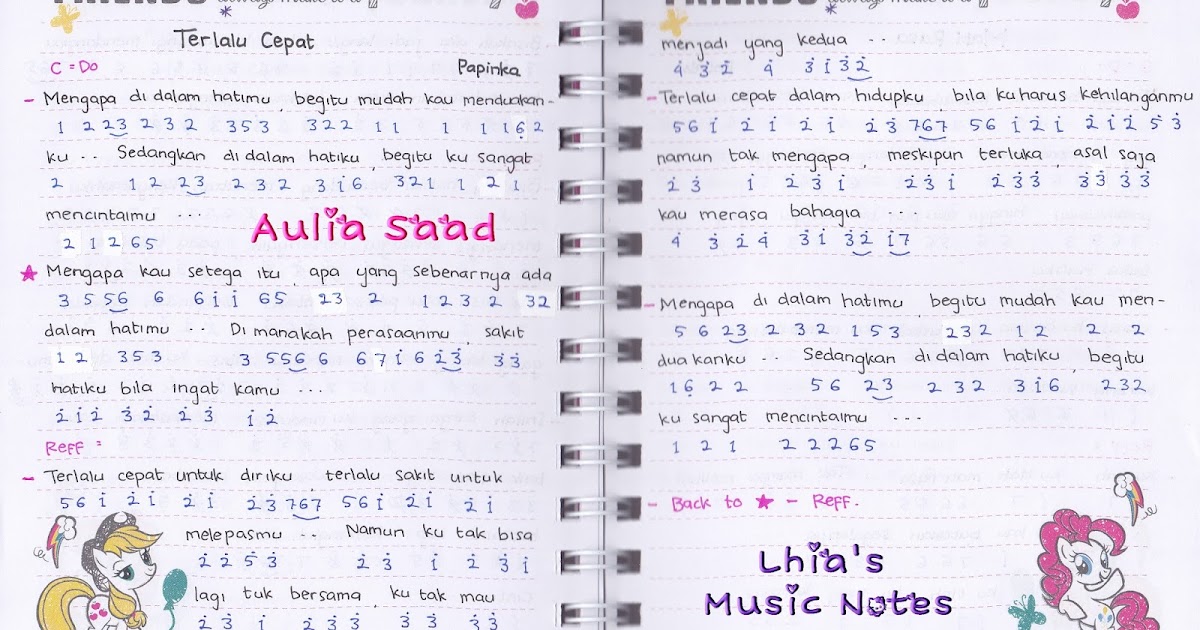 FRIENDS
Terlalu Cepat
C = Do Papinka
- Mengapa di dalam hatimu begitu mudah kau menduakan-
1 2 2̇3 2 3 2 3 5 3 3 2 2 1 1 1 1 1 6̣ 2
ku .. Sedangkan di dalam hatiku, begitu ku sangat
2 1 2 2 3 2 3 2 3 i 6 3 2 1 1 2 1
mencintaimu ...
2 1 2 6 5
Aulia Saad
★ Mengapa kau setega itu, apa yang sebenarnya ada
3 5 56 6 6 i i 65 23 2 1 2 3 2 32
dalam hatimu .. Di manakah perasaanmu, sakit
1 2 3 5 3 3 5 56 6 6 7 i 6 2̇3̇ 3̇3̇
hatiku bila ingat kamu ...
2̇ i 2̇ 3̇ 2̇ 2̇ 3̇ i 2̇
Reff :
- Terlalu cepat untuk diriku terlalu sakit untuk
5 6 i 2̇ i 2̇ i 2̇ 3̇ 767 5 6 i 2̇ i 2̇ i
melepasmu ... Namun ku tak bisa
2̇ 2̇ 5̇ 3̇ 2̇ 3̇ i 2̇ 3̇ i
lagi tuk bersama, ku tak mau
2̇ 3̇ i 2̇ 3̇ 3̇ 3̇ 3̇ 3̇ 3̇
FRIENDS
menjadi yang kedua ..
4̇ 3̇ 2̇ 4̇ 3̇ i 3̇2̇
- Terlalu cepat dalam hidupku bila ku harus kehilanganmu
5 6 i 2̇ i 2̇ i 2̇ 3̇ 767 5 6 i 2̇ i 2̇ i 2̇ 5̇ 3̇
namun tak mengapa, meskipun terluka, asal saja
2̇ 3̇ i 2̇ 3̇ i 2̇ 3̇ i 2̇ 3̇ 3̇ 3̇3̇ 3̇3̇
kau merasa bahagia
4̇ 3̇ 2̇ 4̇ 3̇ i 3̇2̇ i7
- Mengapa di dalam hatimu, begitu mudah kau men-
5 6 23 2 3 2 1 5 3 2 3 2 1 2 2 2
dua kanku .. Sedangkan di dalam hatiku, begitu
1 6̣ 2 2 5 6 23 2 3 2 3 i 6 2 3 2
ku sangat mencintaimu ...
1 2 1 2 2 2 6 5
- Back to ★ - Reff.
Lhia's
Music Notes